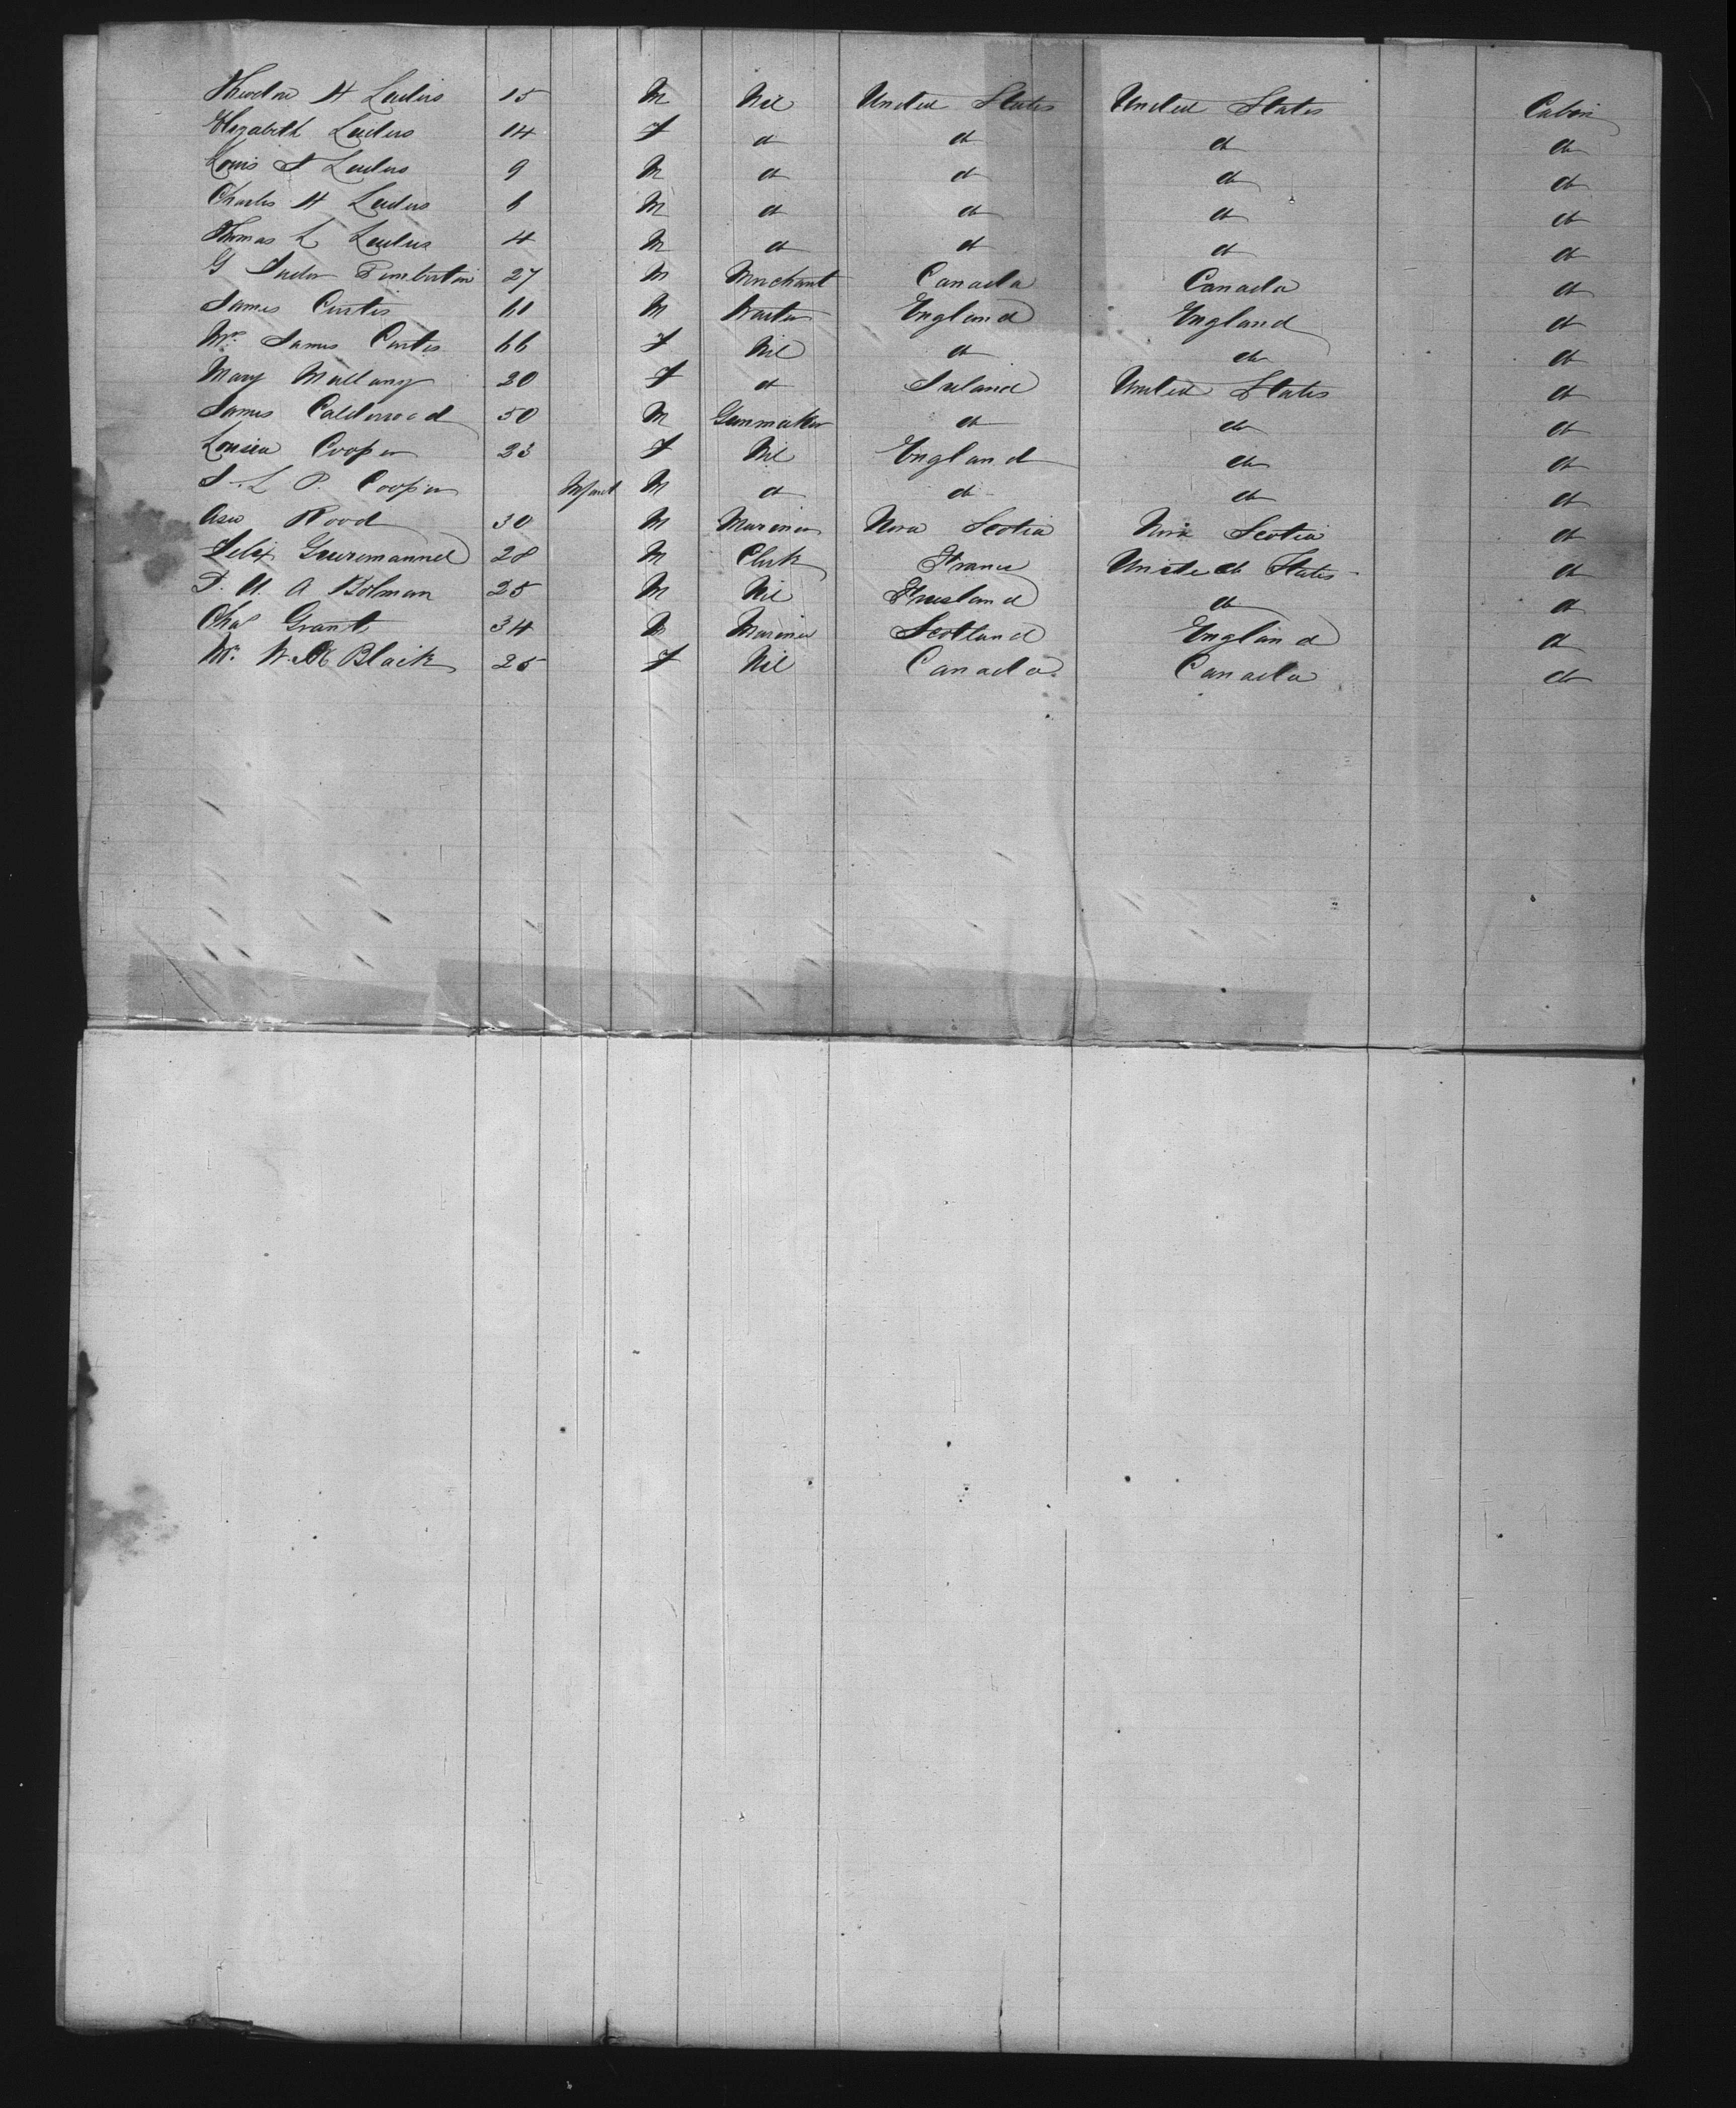 Theodore H Leeders 15 M Nil United States United States Cabin
Elizabeth Leeders 14 F do do do do
Louis S Leeders 9 M do do do do
Charles H Leeders 6 M do do do do
Thomas L Leeders 4 M do do do do
G Tudor Pemberton 27 M Merchant Canada Canada do
James Curtis 61 M England England do
Mrs James Curtis 66 F Nil do do do
Mary Mullany 20 F do Ireland United States do
James Calderwood 50 M Gunmaker do do do
Louisa Cooper 23 F Nil England do do
J. L P. Cooper Infant M do do do do
Asa Rood 30 M Mariner Nova Scotia Nova Scotia do
Felix 28 M Clerk France United States do
A Bolman 25 M Nil Friesland do do
Chas Grant 34 M Mariner Scotland England do
Mrs W. M Black 25 F Nil Canada Canada do